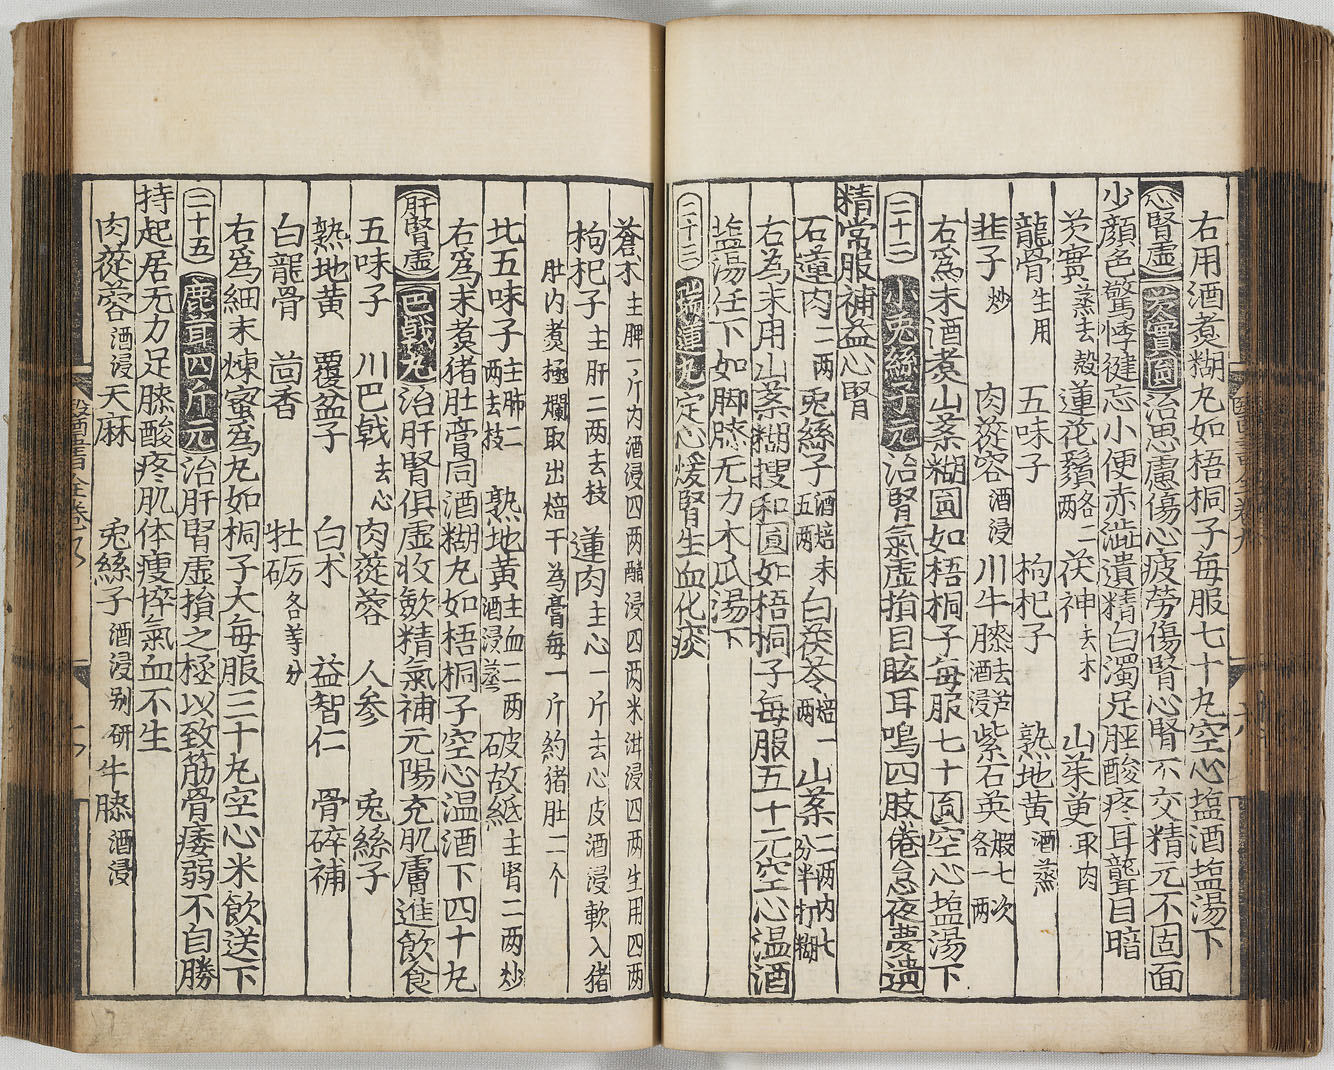 右用酒煮糊丸如梧桐子每服七十丸空心塩酒塩湯下
心腎虚 芡實圎 治思慮傷心疲勞傷腎心腎不交精元不固面
少顔色驚悸健忘小便赤澁遺精白濁足脛酸疼耳聾目暗
芡實蒸去殼 蓮花鬚各二两 茯神去木 山茱萸取肉
龍骨生用 五味子 枸杞子 熟地黄酒蒸
韭子炒 肉蓯容酒浸 川牛膝去芦酒浸 紫石英煅七次各一两
右爲末酒煮山茱糊圎如梧桐子每服七十圎空心塩湯下
二十二 小兎絲子元 治腎氣虚損目眩耳鳴四肢倦怠夜夢遺
精常服補益心腎
石蓮肉二两 兎絲子酒焙末五两 白茯苓焙一两 山茱二两内七分半打糊
右為末用山茱糊搜和圓如梧桐子每服五十元空心温酒
塩湯任下如脚膝无力木瓜湯下
二十三 瑞蓮丸 定心煖腎生血化痰
蒼朮主脾一斤内酒浸四两醋浸四两米泔浸四两生用四两
枸杞子主肝二两去枝 蓮肉主心一斤去心皮酒浸軟入猪
肚内煮極爛取出焙干為膏每一斤約猪肚一个
北五味子主肺二两去枝 熟地黄主血二两酒浸蒸 破故紙主腎二两炒
右为末煮猪肚膏同酒糊丸如梧桐子空心温酒下四十丸
肝腎虚 巴戟丸 治肝腎俱虚收歛精氣補元陽充肌膚進飲食
五味子 川巴戟去心 肉蓯蓉 人参 兎絲子
熟地黄 覆盆子 白朮 益智仁 骨碎補
白龍骨 茴香 牡砺各等分
右爲細末煉蜜爲丸如桐子大每服三十丸空心米飲送下
二十五 鹿茸四斤元 治肝腎虚損之極以致筋骨痿弱不自勝
持起居无力足膝酸疼肌体瘦悴氣血不生
肉蓯蓉酒浸 天麻 兎絲子酒浸别研 牛膝酒浸